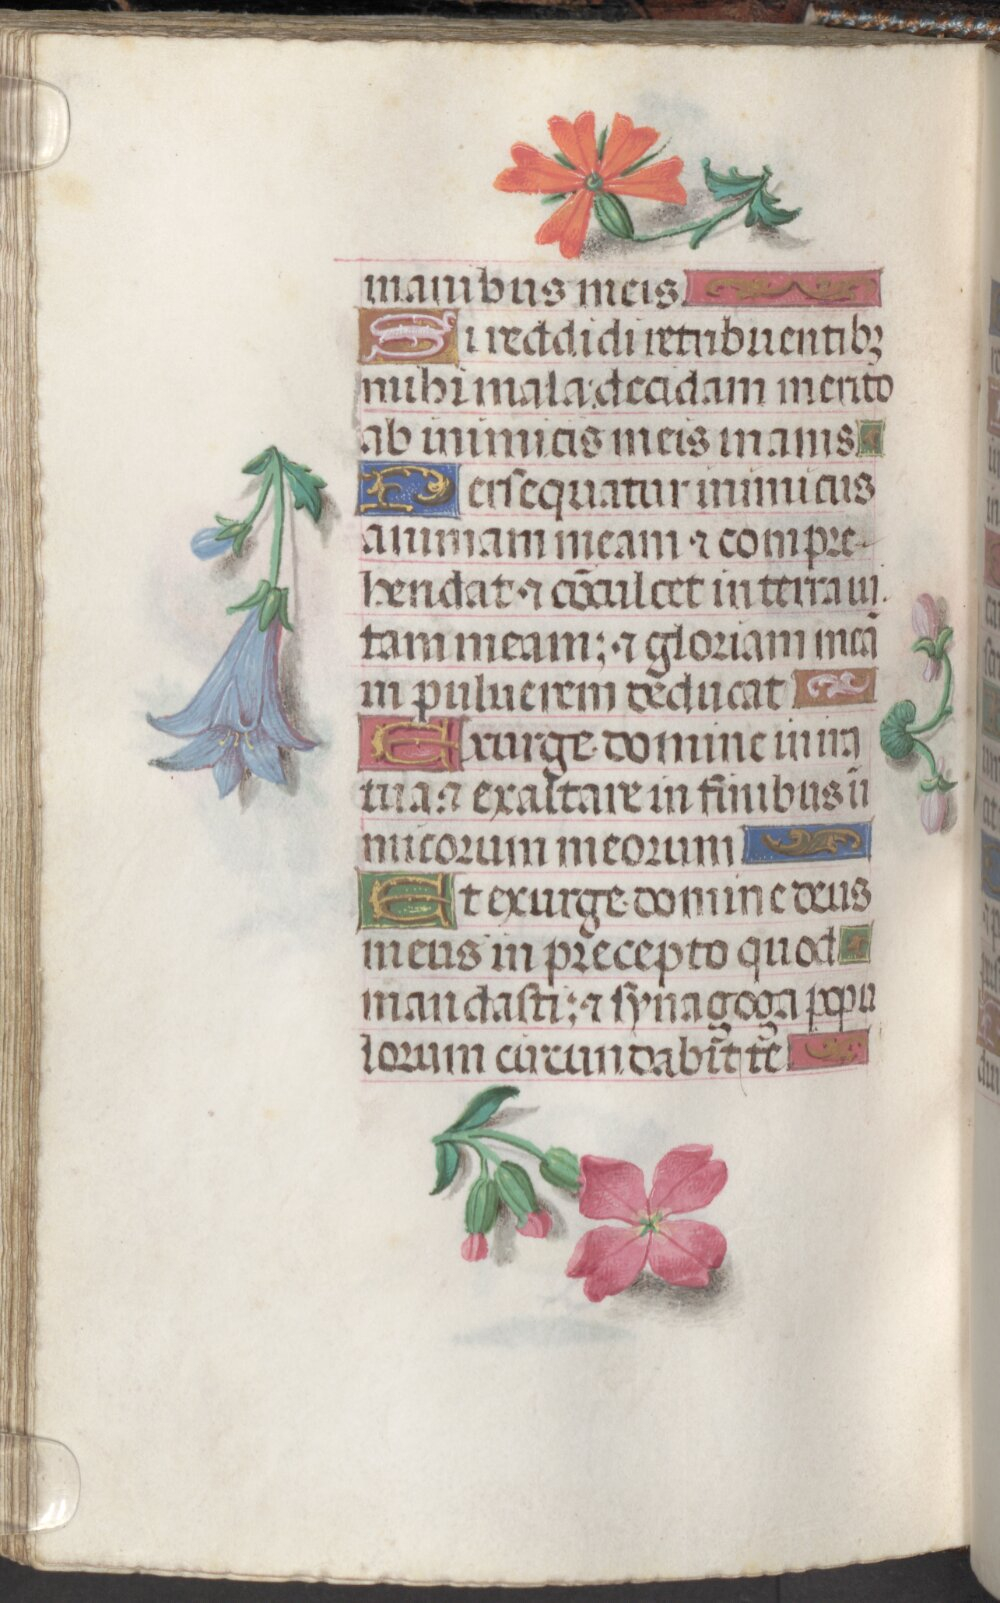 manibus meis.
Si reddidi retribuentibꝫ
michi mala: decidam merito
ab inimicis meis inanis.
Persequatur inimicus
animam meam ⁊ compre-
hendat ⁊ cōculcet in terra ui
tam meam: ⁊ gloriam meā
in puluerem deducat
Exurge domine in ira
tua ⁊ exaltare in finibus ini
micorum meorum
Et exurge domine deus
meus in precepto quod
mandasti: ⁊ synagoga popu
lorum circundabit te.